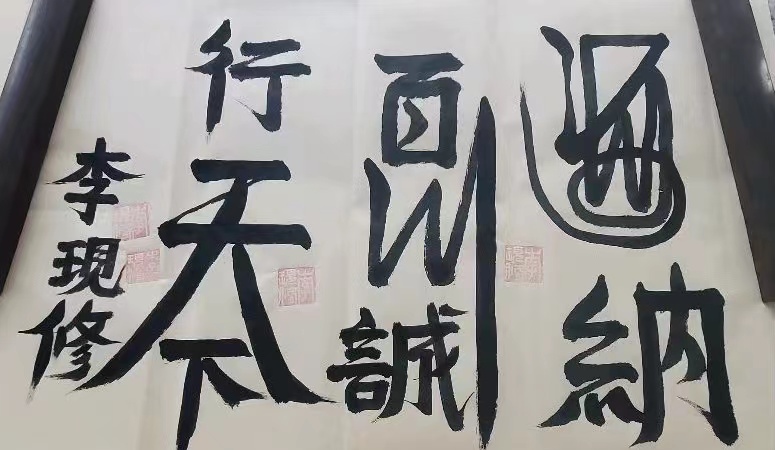 海納
百川誠
行天下
李現修